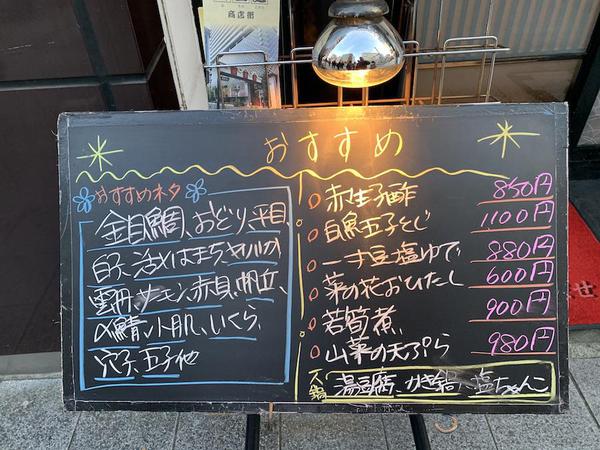 商店街
おすすめ
おすすめネタ
金目鯛、おどり、平目、
白子、活〆はまち、ヤリイカ
雲丹、サーモン、赤貝、帆立、
〆鯖、小肌、いくら、
穴子、玉子他
赤生子酢 850円
白魚玉子とじ 1,100円
一寸豆塩ゆで 880円
菜の花おひたし 600円
若筍煮 900円
山菜の天ぷら 980円
鍋 湯豆腐、かき鍋、塩ちゃんこ
せ